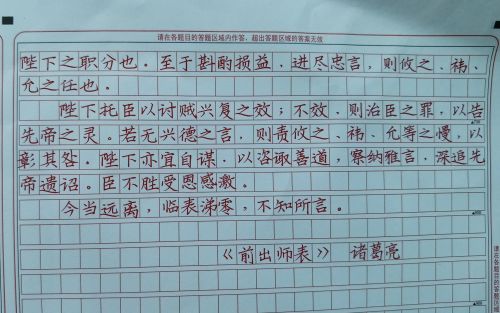 请在各题目的答题区域内作答，超出答题区域的答案无效
陛下之职分也。至于斟酌损益，进尽忠言，则攸之、祎、
允之任也。
陛下托臣以讨贼兴复之效；不效，则治臣之罪，以告
先帝之灵。若无兴德之言，则责攸之、祎、允等之慢，以
彰其咎。陛下亦宜自谋，以咨诹善道，察纳雅言，深追先
帝遗诏。臣不胜受恩感激。
今当远离，临表涕零，不知所言。
《前出师表》 诸葛亮
请在各题目的答题区